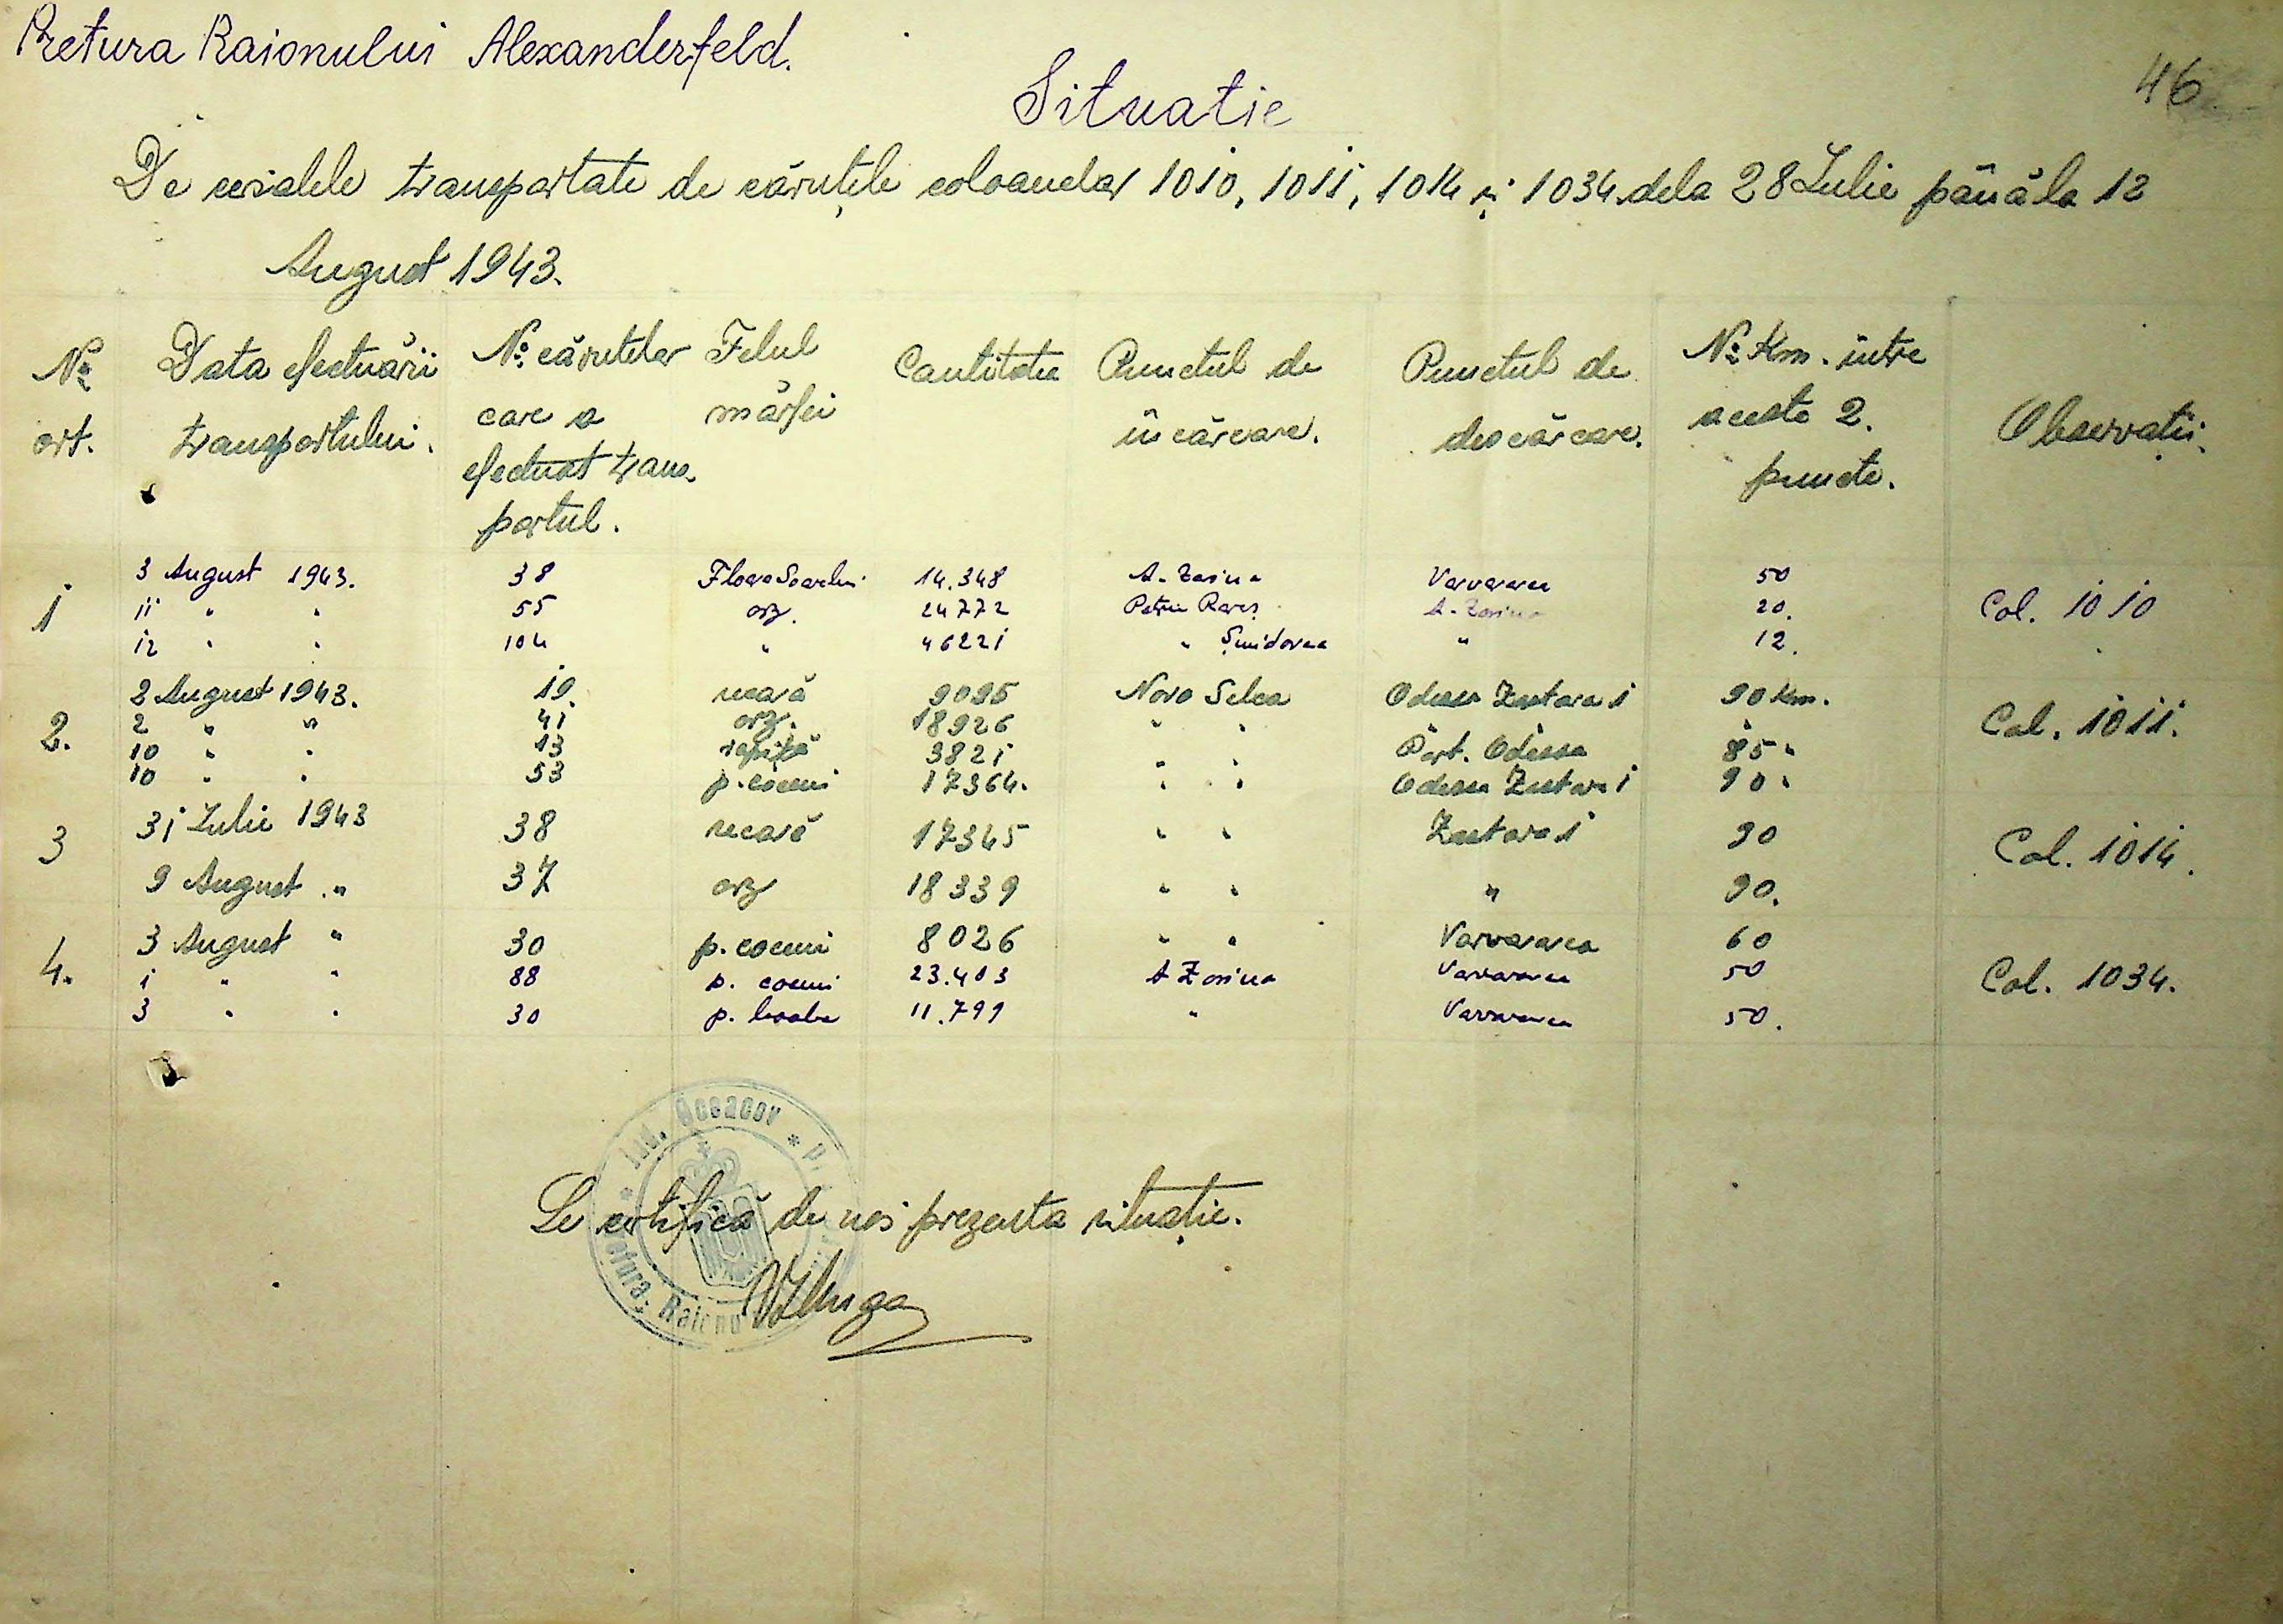 Pretura Raionului Alexanderfeld.
46
Situatie
De cerialele transportate de căruțele coloanelor 1010, 1011, 1014 și 1034 dela 28 Iulie până la 12
August 1943.
No ort. Data efectuării transportului. No căruțelor care a efectuat transportul. Felul mărfei Cantitatea Punctul de încărcare. Punctul de descărcare. No Km. între aceste 2. puncte. Observații.
1 3 August 1943. 38 Floare Soarelui 14.348 A-Zorina Varvarovca 50
11 " " 55 orz. 24772 Petru Rareș A-Zorina 20. Col. 1010
12 " " 104 " 46221 " Șmidovca " 12.
2 August 1943. 19. secară 9095 Novo Selca Odessa Zastava 1 90 Km.
2. 2 " " 41 orz. 18926 " " " " Col. 1011.
10 " " 13 rapiță 3821 " " Port. Odessa 85 "
10 " " 53 p. coceni 17364. " " Odessa Zastava 1 90 "
3 31 Iulie 1943 38 secară 17345 " " Zastava 1 90 Col. 1014.
9 August " 37 orz 18339 " " " 90.
3 August " 30 p. coceni 8026 " " Varvarovca 60
4. 1 " " 88 p. coceni 23.403 A Zorina Varvarovca 50 Col. 1034.
3 " " 30 p. boabe 11.799 " Varvarovca 50.
Jud. Oceacov * Pretura Raionu
Se certifică de noi prezenta situație.